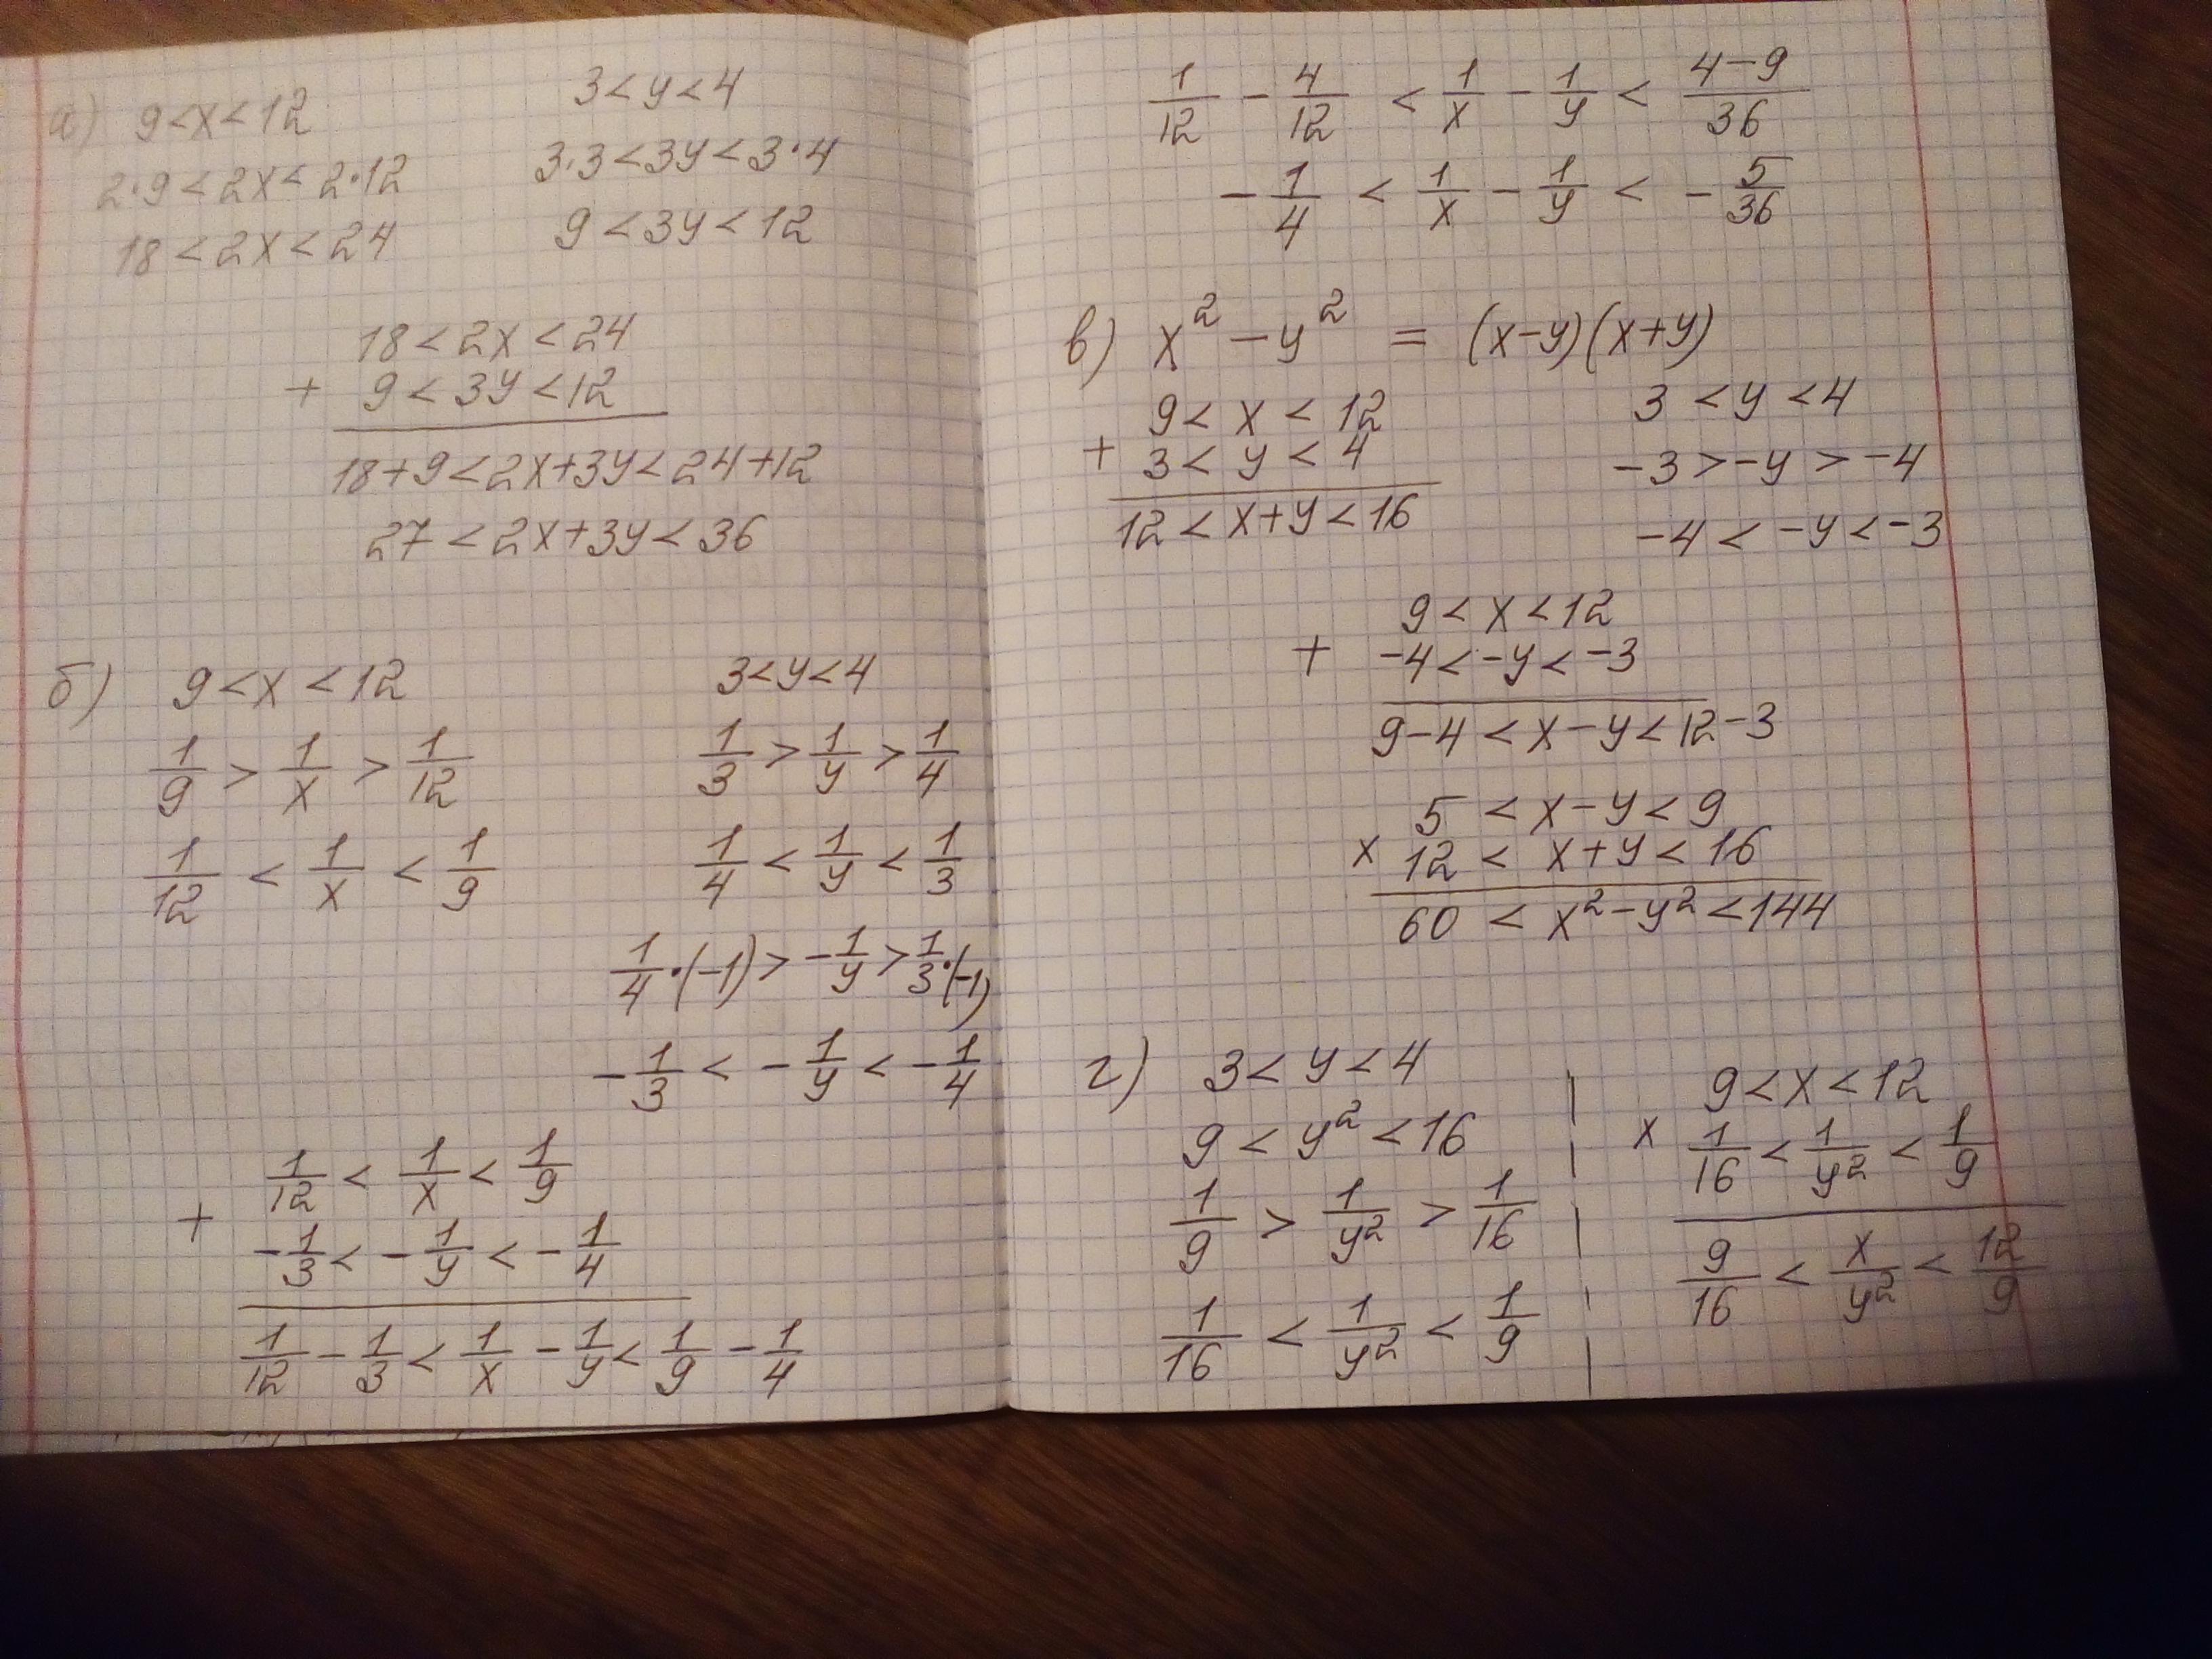 а) 9<x<12 3<y<4
2·9<2x<2·12 3·3<3y<3·4
18<2x<24 9<3y<12
18<2x<24
+ 9<3y<12
18+9<2x+3y<24+12
27<2x+3y<36
б) 9<x<12 3<y<4
1/9 > 1/x > 1/12 1/3 > 1/y > 1/4
1/12 < 1/x < 1/9 1/4 < 1/y < 1/3
1/4·(-1) > -1/y > 1/3·(-1)
-1/3 < -1/y < -1/4
1/12 < 1/x < 1/9
+ -1/3 < -1/y < -1/4
1/12 - 1/3 < 1/x - 1/y < 1/9 - 1/4
1/12 - 4/12 < 1/x - 1/y < (4-9)/36
-1/4 < 1/x - 1/y < -5/36
в) x² - y² = (x-y)(x+y)
9<x<12 3<y<4
+ 3<y<4 -3>-y>-4
12<x+y<16 -4<-y<-3
9<x<12
+ -4<-y<-3
9-4<x-y<12-3
5<x-y<9
x 12<x+y<16
60<x²-y²<144
г) 3<y<4 9<x<12
9<y²<16 x 1/16 < 1/y² < 1/9
1/9 > 1/y² > 1/16 9/16 < x/y² < 12/9
1/16 < 1/y² < 1/9